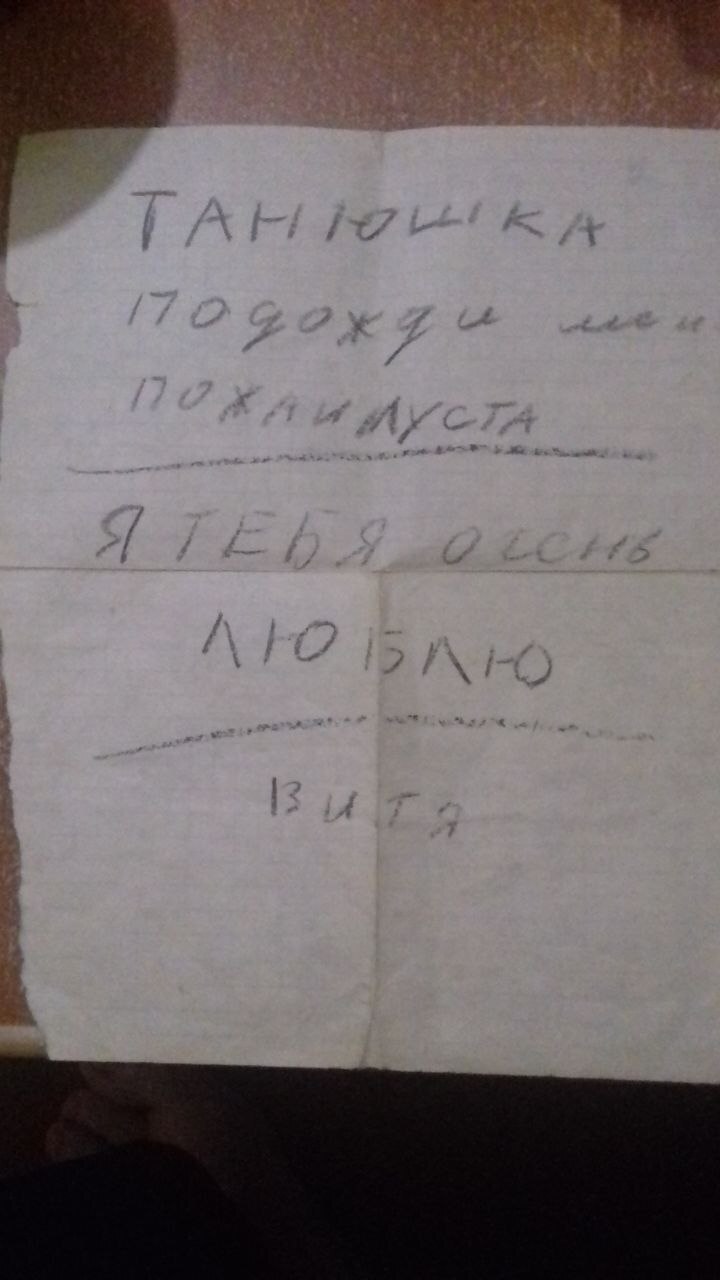 ТАНЮШКА
подожди мен
ПОЖАИЛУСТА
Я ТЕБЯ очень
ЛЮБЛЮ
ВИТЯ